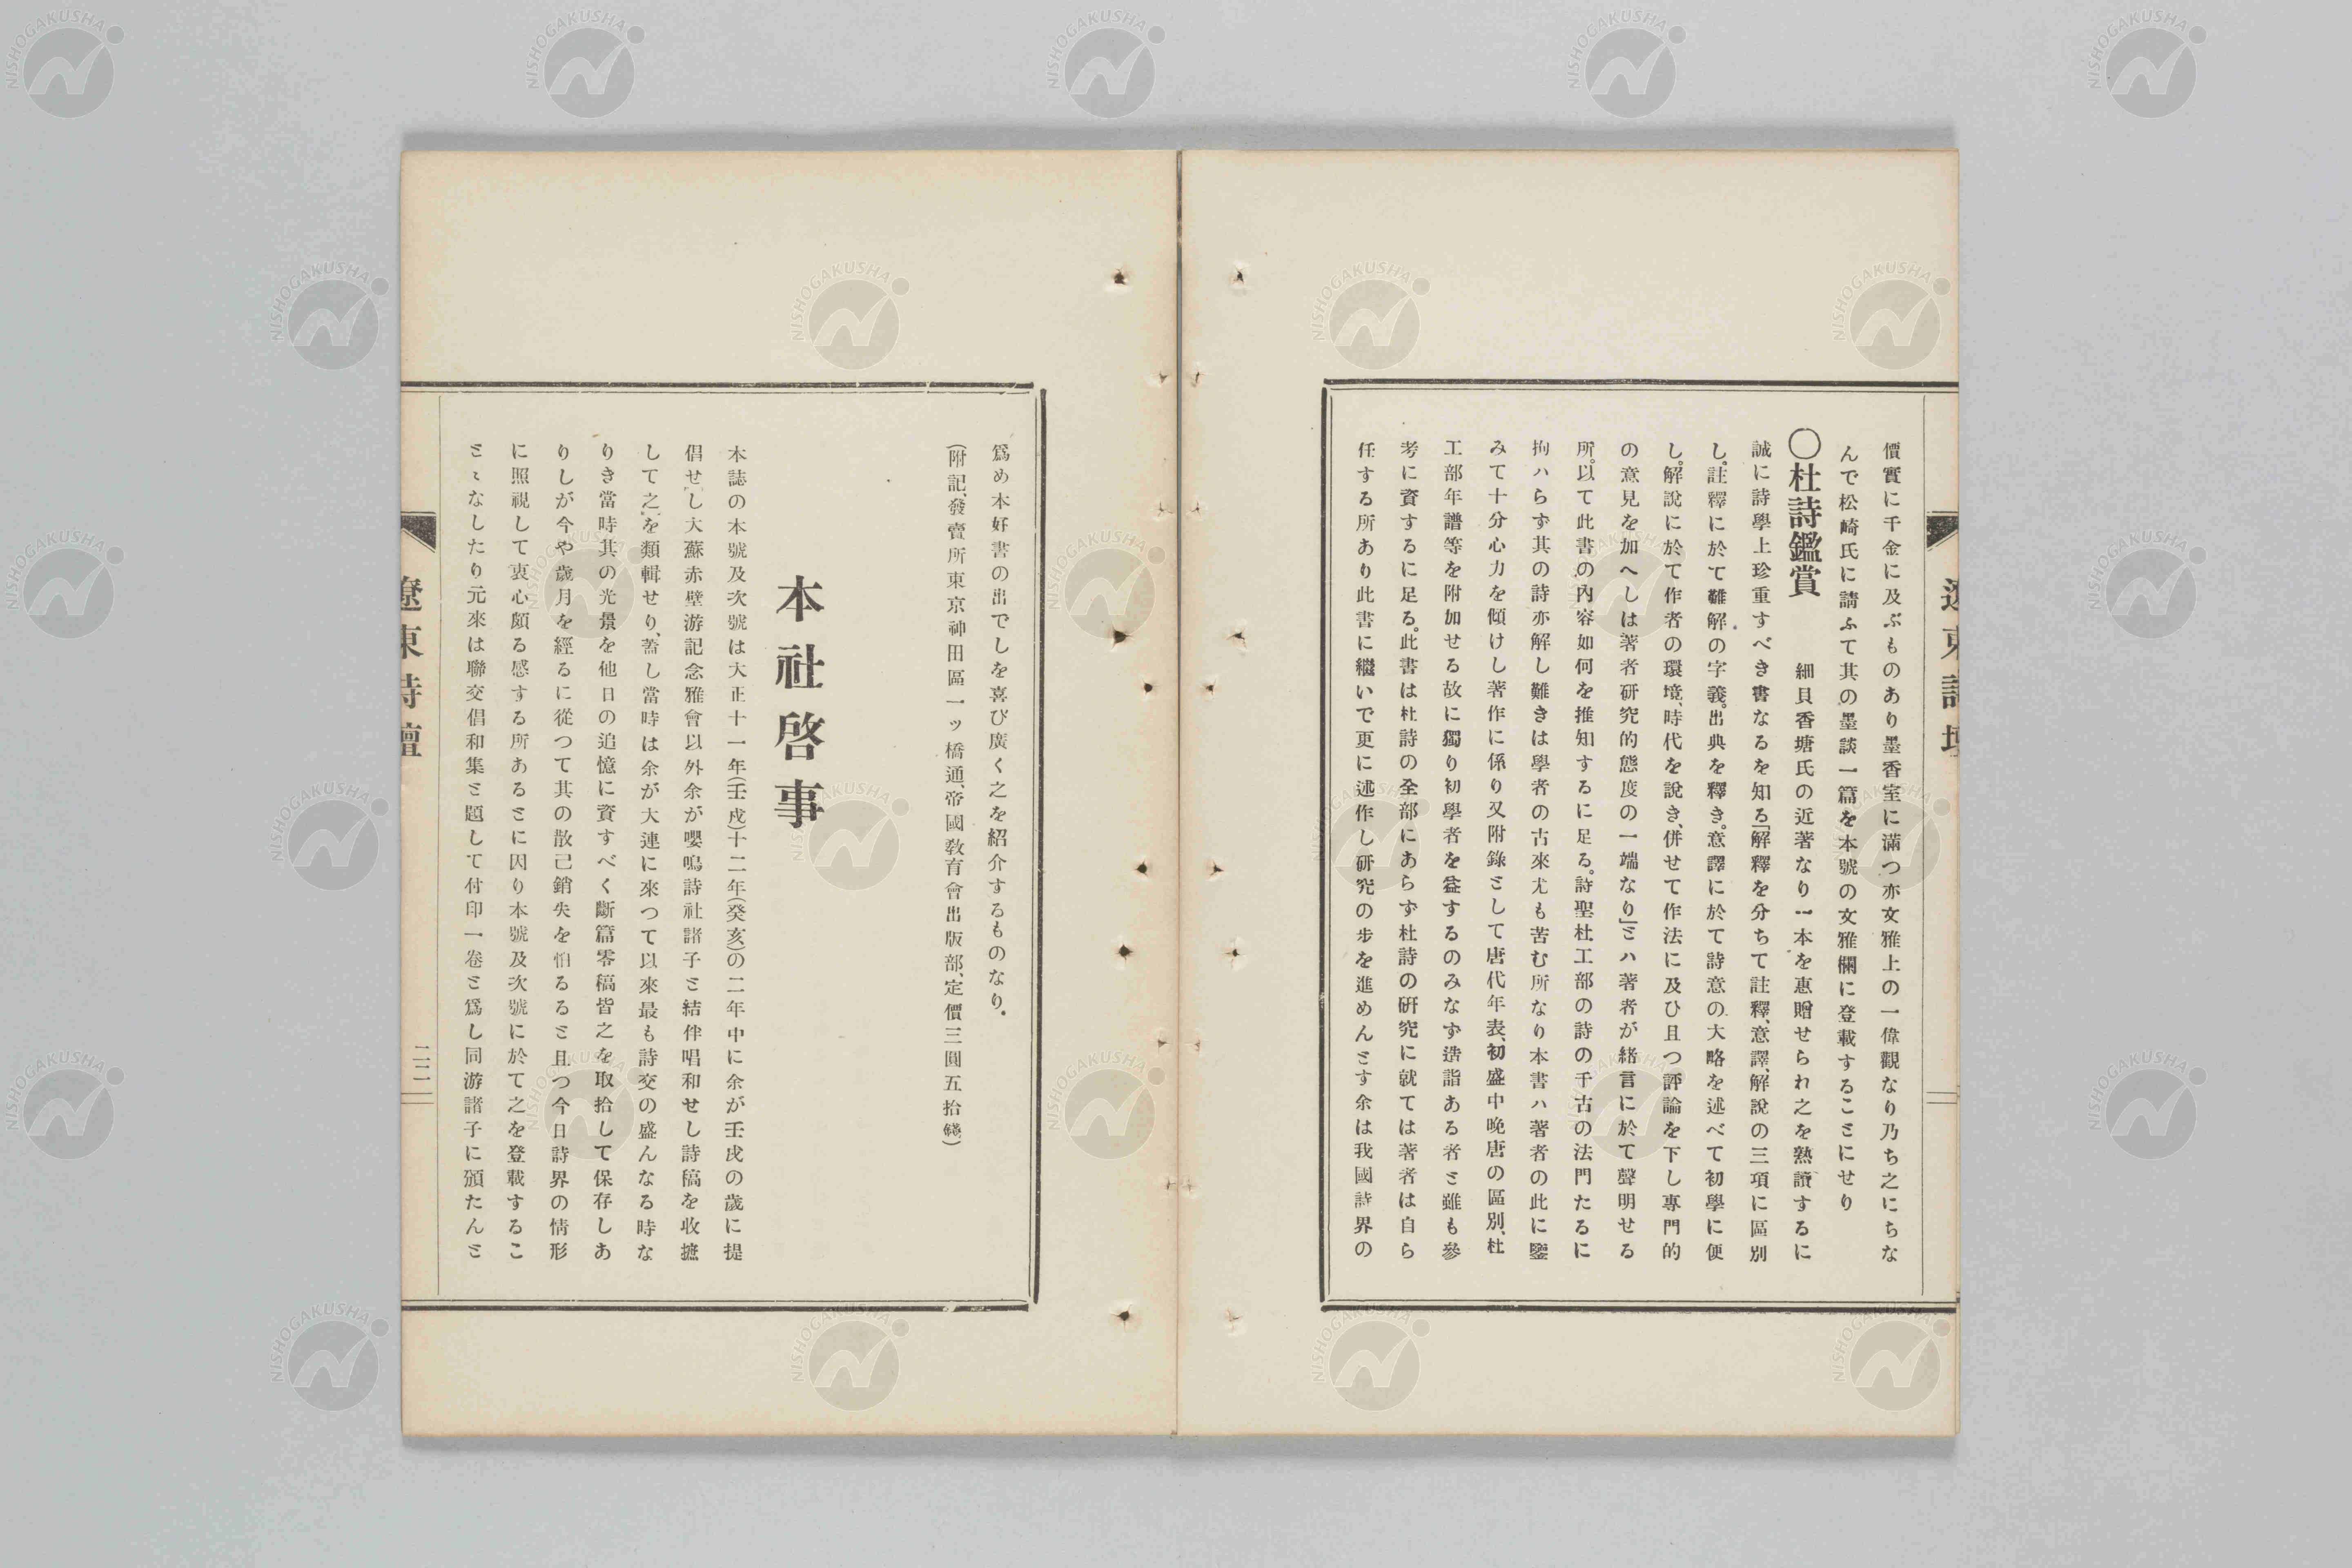 價實に千金に及ぶものあり墨香室に滿つ亦文雅上の一偉觀なり乃ち之にちな
んで松崎氏に請ふて其の墨談一篇を本號の文雅欄に登載することにせり
〇杜詩鑑賞 細貝香塘氏の近著なり一本を惠贈せられ之を熟讀するに
誠に詩學上珍重すべき書なるを知る「解釋を分ちて註釋、意譯、解說の三項に區別
し。註釋に於て難解の字義。出典を釋き。意譯に於て詩意の大略を述べて初學に便
し。解說に於て作者の環境、時代を說き、併せて作法に及ひ且つ評論を下し專門的
の意見を加へしは著者研究的態度の一端なり」とハ著者が緖言に於て聲明せる
所。以て此書の內容如何を推知するに足る。詩聖杜工部の詩の千古の法門たるに
拘ハらず其の詩亦解し難きは學者の古來尤も苦む所なり本書ハ著者の此に鑒
みて十分心力を傾けし著作に係り又附錄として唐代年表、初盛中晚唐の區別、杜
工部年譜等を附加せる故に獨り初學者を益するのみなず造詣ある者と雖も參
考に資するに足る。此書は杜詩の全部にあらず杜詩の硏究に就ては著者は自ら
任する所あり此書に繼いで更に述作し硏究の步を進めんとす余は我國詩界の
爲め本好書の出でしを喜び廣く之を紹介するものなり.
(附記、發賣所東京神田區一ッ橋通、帝國敎育會出版部、定價三圓五拾錢)
本社啓事
本誌の本號及次號は大正十一年(壬戌)十二年(癸亥)の二年中に余が壬戌の歲に提
倡せし大蘇赤壁游記念雅會以外余が嚶鳴詩社諸子と結伴唱和せし詩稿を收摭
して之を類輯せり、蓋し當時は余が大連に來つて以來最も詩交の盛んなる時な
りき當時其の光景を他日の追憶に資すべく斷篇零稿皆之を取拾して保存しあ
りしが今や歲月を經るに從つて其の散己銷失を怕るると且つ今日詩界の情形
に照視して衷心頗る感する所あるとに因り本號及次號に於て之を登載するこ
とゝなしたり元來は聯交倡和集と題して付印一卷と爲し同游諸子に頒たんと
遼東詩壇
二二
遼東詩壇
NISHOGAKUSHA